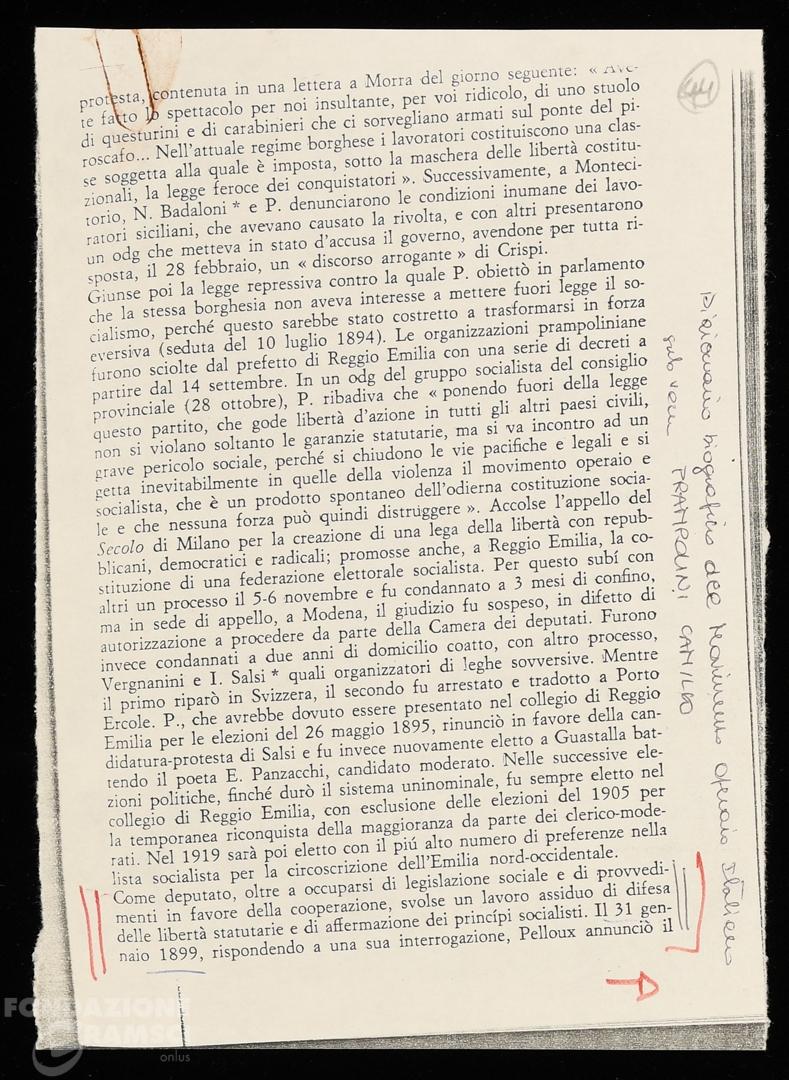 44
protesta, contenuta in una lettera a Morra del giorno seguente: « Ave-
te fatto lo spettacolo per noi insultante, per voi ridicolo, di uno stuolo
di questurini e di carabinieri che ci sorvegliano armati sul ponte del pi-
roscafo... Nell'attuale regime borghese i lavoratori costituiscono una clas-
se soggetta alla quale è imposta, sotto la maschera delle libertà costitu-
zionali, la legge feroce dei conquistatori ». Successivamente, a Monteci-
torio, N. Badaloni * e P. denunciarono le condizioni inumane dei lavo-
ratori siciliani, che avevano causato la rivolta, e con altri presentarono
un odg che metteva in stato d'accusa il governo, avendone per tutta ri-
sposta, il 28 febbraio, un « discorso arrogante » di Crispi.
Giunse poi la legge repressiva contro la quale P. obiettò in parlamento
che la stessa borghesia non aveva interesse a mettere fuori legge il so-
cialismo, perché questo sarebbe stato costretto a trasformarsi in forza
eversiva (seduta del 10 luglio 1894). Le organizzazioni prampoliniane
furono sciolte dal prefetto di Reggio Emilia con una serie di decreti a
partire dal 14 settembre. In un odg del gruppo socialista del consiglio
provinciale (28 ottobre), P. ribadiva che « ponendo fuori della legge
questo partito, che gode libertà d'azione in tutti gli altri paesi civili,
non si violano soltanto le garanzie statutarie, ma si va incontro ad un
grave pericolo sociale, perché si chiudono le vie pacifiche e legali e si
getta inevitabilmente in quelle della violenza il movimento operaio e
socialista, che è un prodotto spontaneo dell'odierna costituzione socia-
le e che nessuna forza può quindi distruggere ». Accolse l'appello del
Secolo di Milano per la creazione di una lega della libertà con repub-
blicani, democratici e radicali; promosse anche, a Reggio Emilia, la co-
stituzione di una federazione elettorale socialista. Per questo subí con
altri un processo il 5-6 novembre e fu condannato a 3 mesi di confino,
ma in sede di appello, a Modena, il giudizio fu sospeso, in difetto di
autorizzazione a procedere da parte della Camera dei deputati. Furono
invece condannati a due anni di domicilio coatto, con altro processo,
Vergnanini e I. Salsi * quali organizzatori di leghe sovversive. Mentre
il primo riparò in Svizzera, il secondo fu arrestato e tradotto a Porto
Ercole. P., che avrebbe dovuto essere presentato nel collegio di Reggio
Emilia per le elezioni del 26 maggio 1895, rinunciò in favore della can-
didatura-protesta di Salsi e fu invece nuovamente eletto a Guastalla bat-
tendo il poeta E. Panzacchi, candidato moderato. Nelle successive ele-
zioni politiche, finché durò il sistema uninominale, fu sempre eletto nel
collegio di Reggio Emilia, con esclusione delle elezioni del 1905 per
la temporanea riconquista della maggioranza da parte dei clerico-mode-
rati. Nel 1919 sarà poi eletto con il piú alto numero di preferenze nella
lista socialista per la circoscrizione dell'Emilia nord-occidentale.
Come deputato, oltre a occuparsi di legislazione sociale e di provvedi-
menti in favore della cooperazione, svolse un lavoro assiduo di difesa
delle libertà statutarie e di affermazione dei princípi socialisti. Il 31 gen-
naio 1899, rispondendo a una sua interrogazione, Pelloux annunciò il
Dizionario biografico del Movimento Operaio Italiano
sub voce PRAMPOLINI CAMILLO
FONDAZIONE
GRAMSCI
onlus